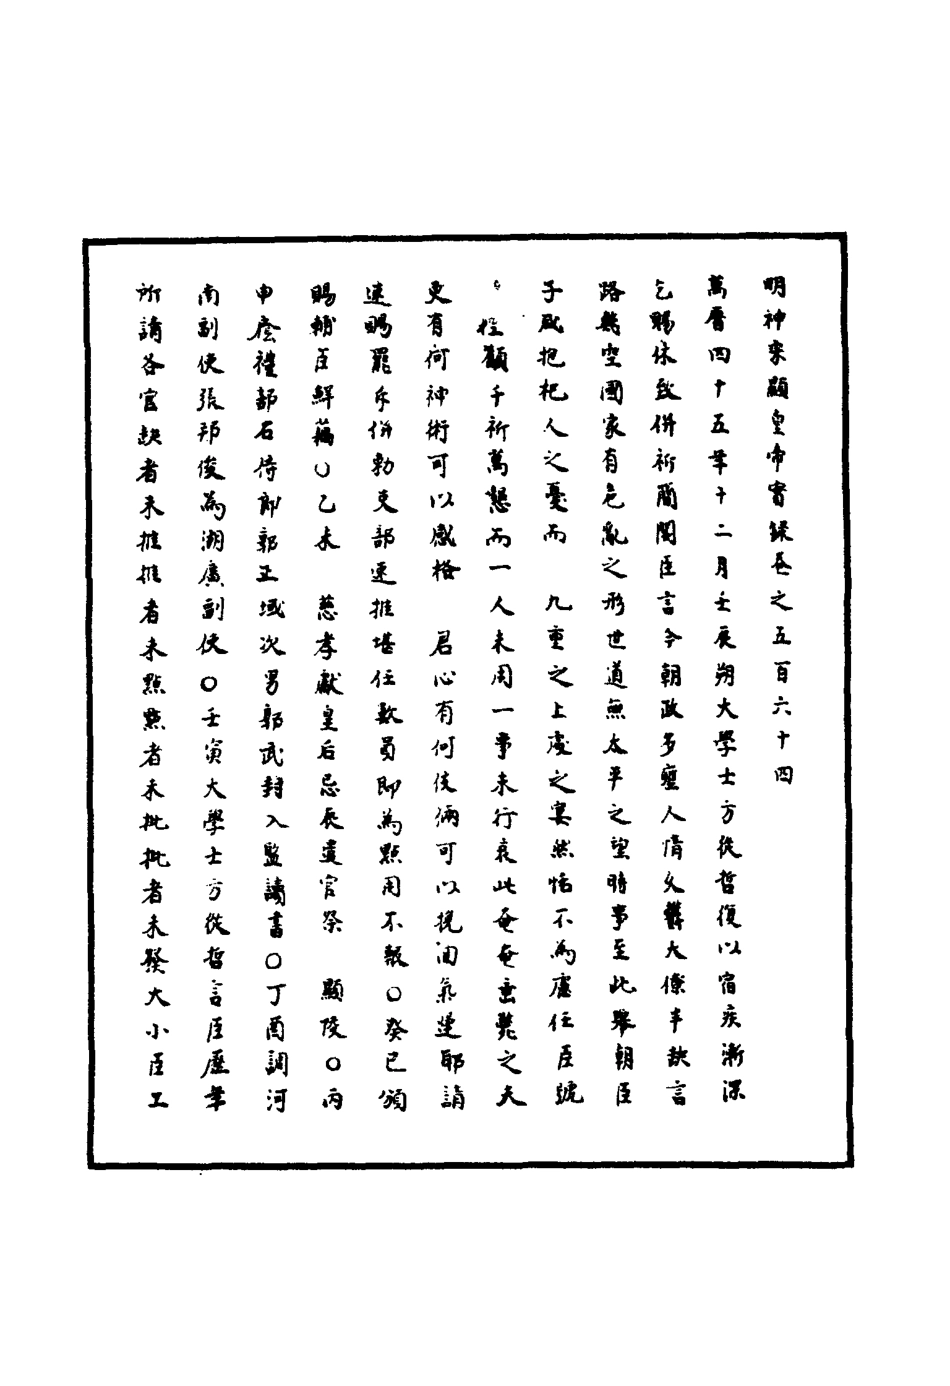 明神宗顯皇帝實錄卷之五百六十四
萬曆四十五年十二月壬辰朔大學士方從哲復以宿疾漸深
乞賜休致併祈簡閣臣言今朝政多壅人情久鬱大僚半缺言
路幾空國家有危亂之形世道無太平之望時事至此舉朝臣
子咸抱杞人之憂而　九重之上處之宴然恬不為慮任臣號
顲千祈萬懇而一人未用一事未行哀此奄奄垂斃之夫
更有何神術可以感格　君心有何伎倆可以挽回氣運耶請
速賜罷斥併勑吏部速推堪任數員即為點用不報○癸巳頒
賜輔臣鮮藕○乙未　慈孝獻皇后忌辰遣官祭　顯陵○丙
申蔭禮部右侍郎郭正域次男郭武封入監讀書○丁酉調河
南副使張邦俊為湖廣副使○壬寅大學士方從哲言臣歷年
所請各官缺者未推推者未點點者未批批者未發大小臣工